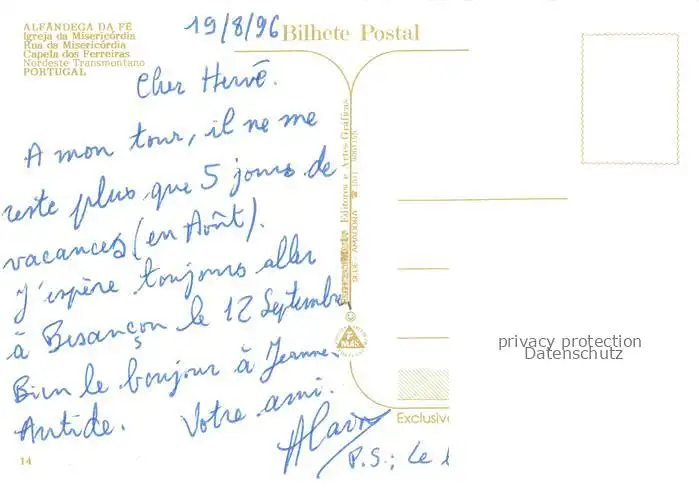 ALFÂNDEGA DA FÉ
Igreja da Misericórdia
Rua da Misericórdia
Capela dos Ferreiras
Nordeste Transmontano
PORTUGAL
19/8/96
Bilhete Postal
Cher Hervé.
A mon tour, il ne me
reste plus que 5 jours de
vacances (en Août).
J'espère toujours aller
à Besançon le 12 Septembre
Bien le bonjour à Jeanne-
Antide. Votre ami.
Alain
P.S.: Le
14
Editores e Artes Gráficas
SEDE AMADORA
MAS
Exclusiv
privacy protection
Datenschutz